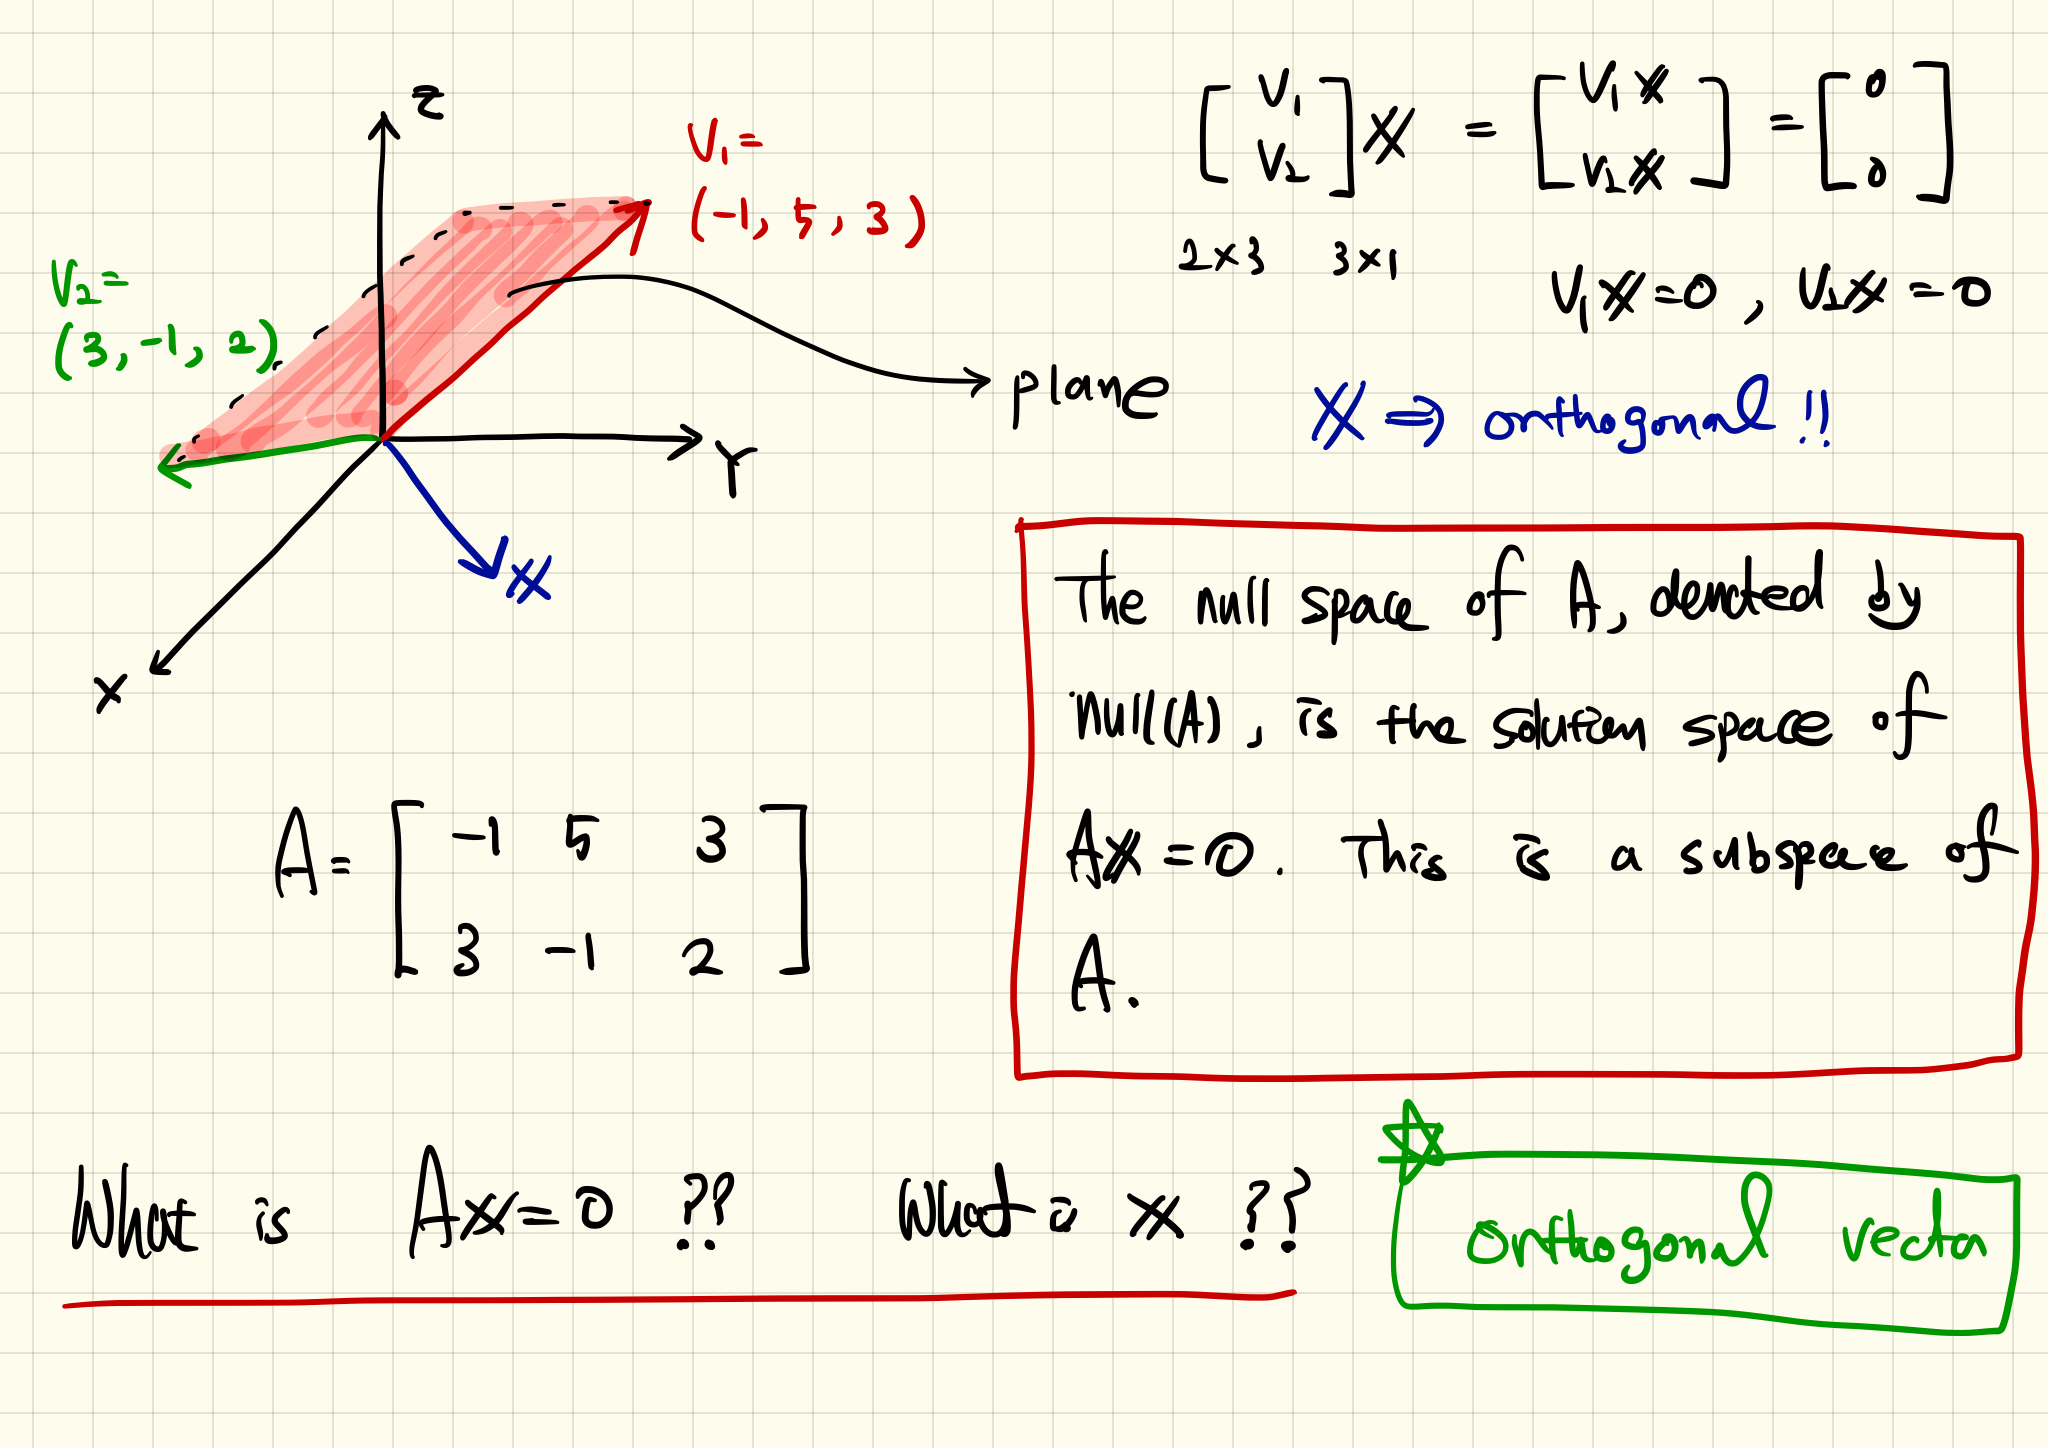 z
V₁ =
(-1, 5, 3)
V₂ =
(3, -1, 2)
Y
X
x
plane
[V₁ V₂] x = [V₁x V₂x] = [0 0]
2×3 3×1
V₁x = 0 , V₂x = 0
x ⇒ orthogonal !!
The null space of A, denoted by
null(A), is the solution space of
Ax = 0. This is a subspace of
A.
A = [
-1 5 3
3 -1 2
]
What is Ax = 0 ?? What is x ??
☆
orthogonal vector